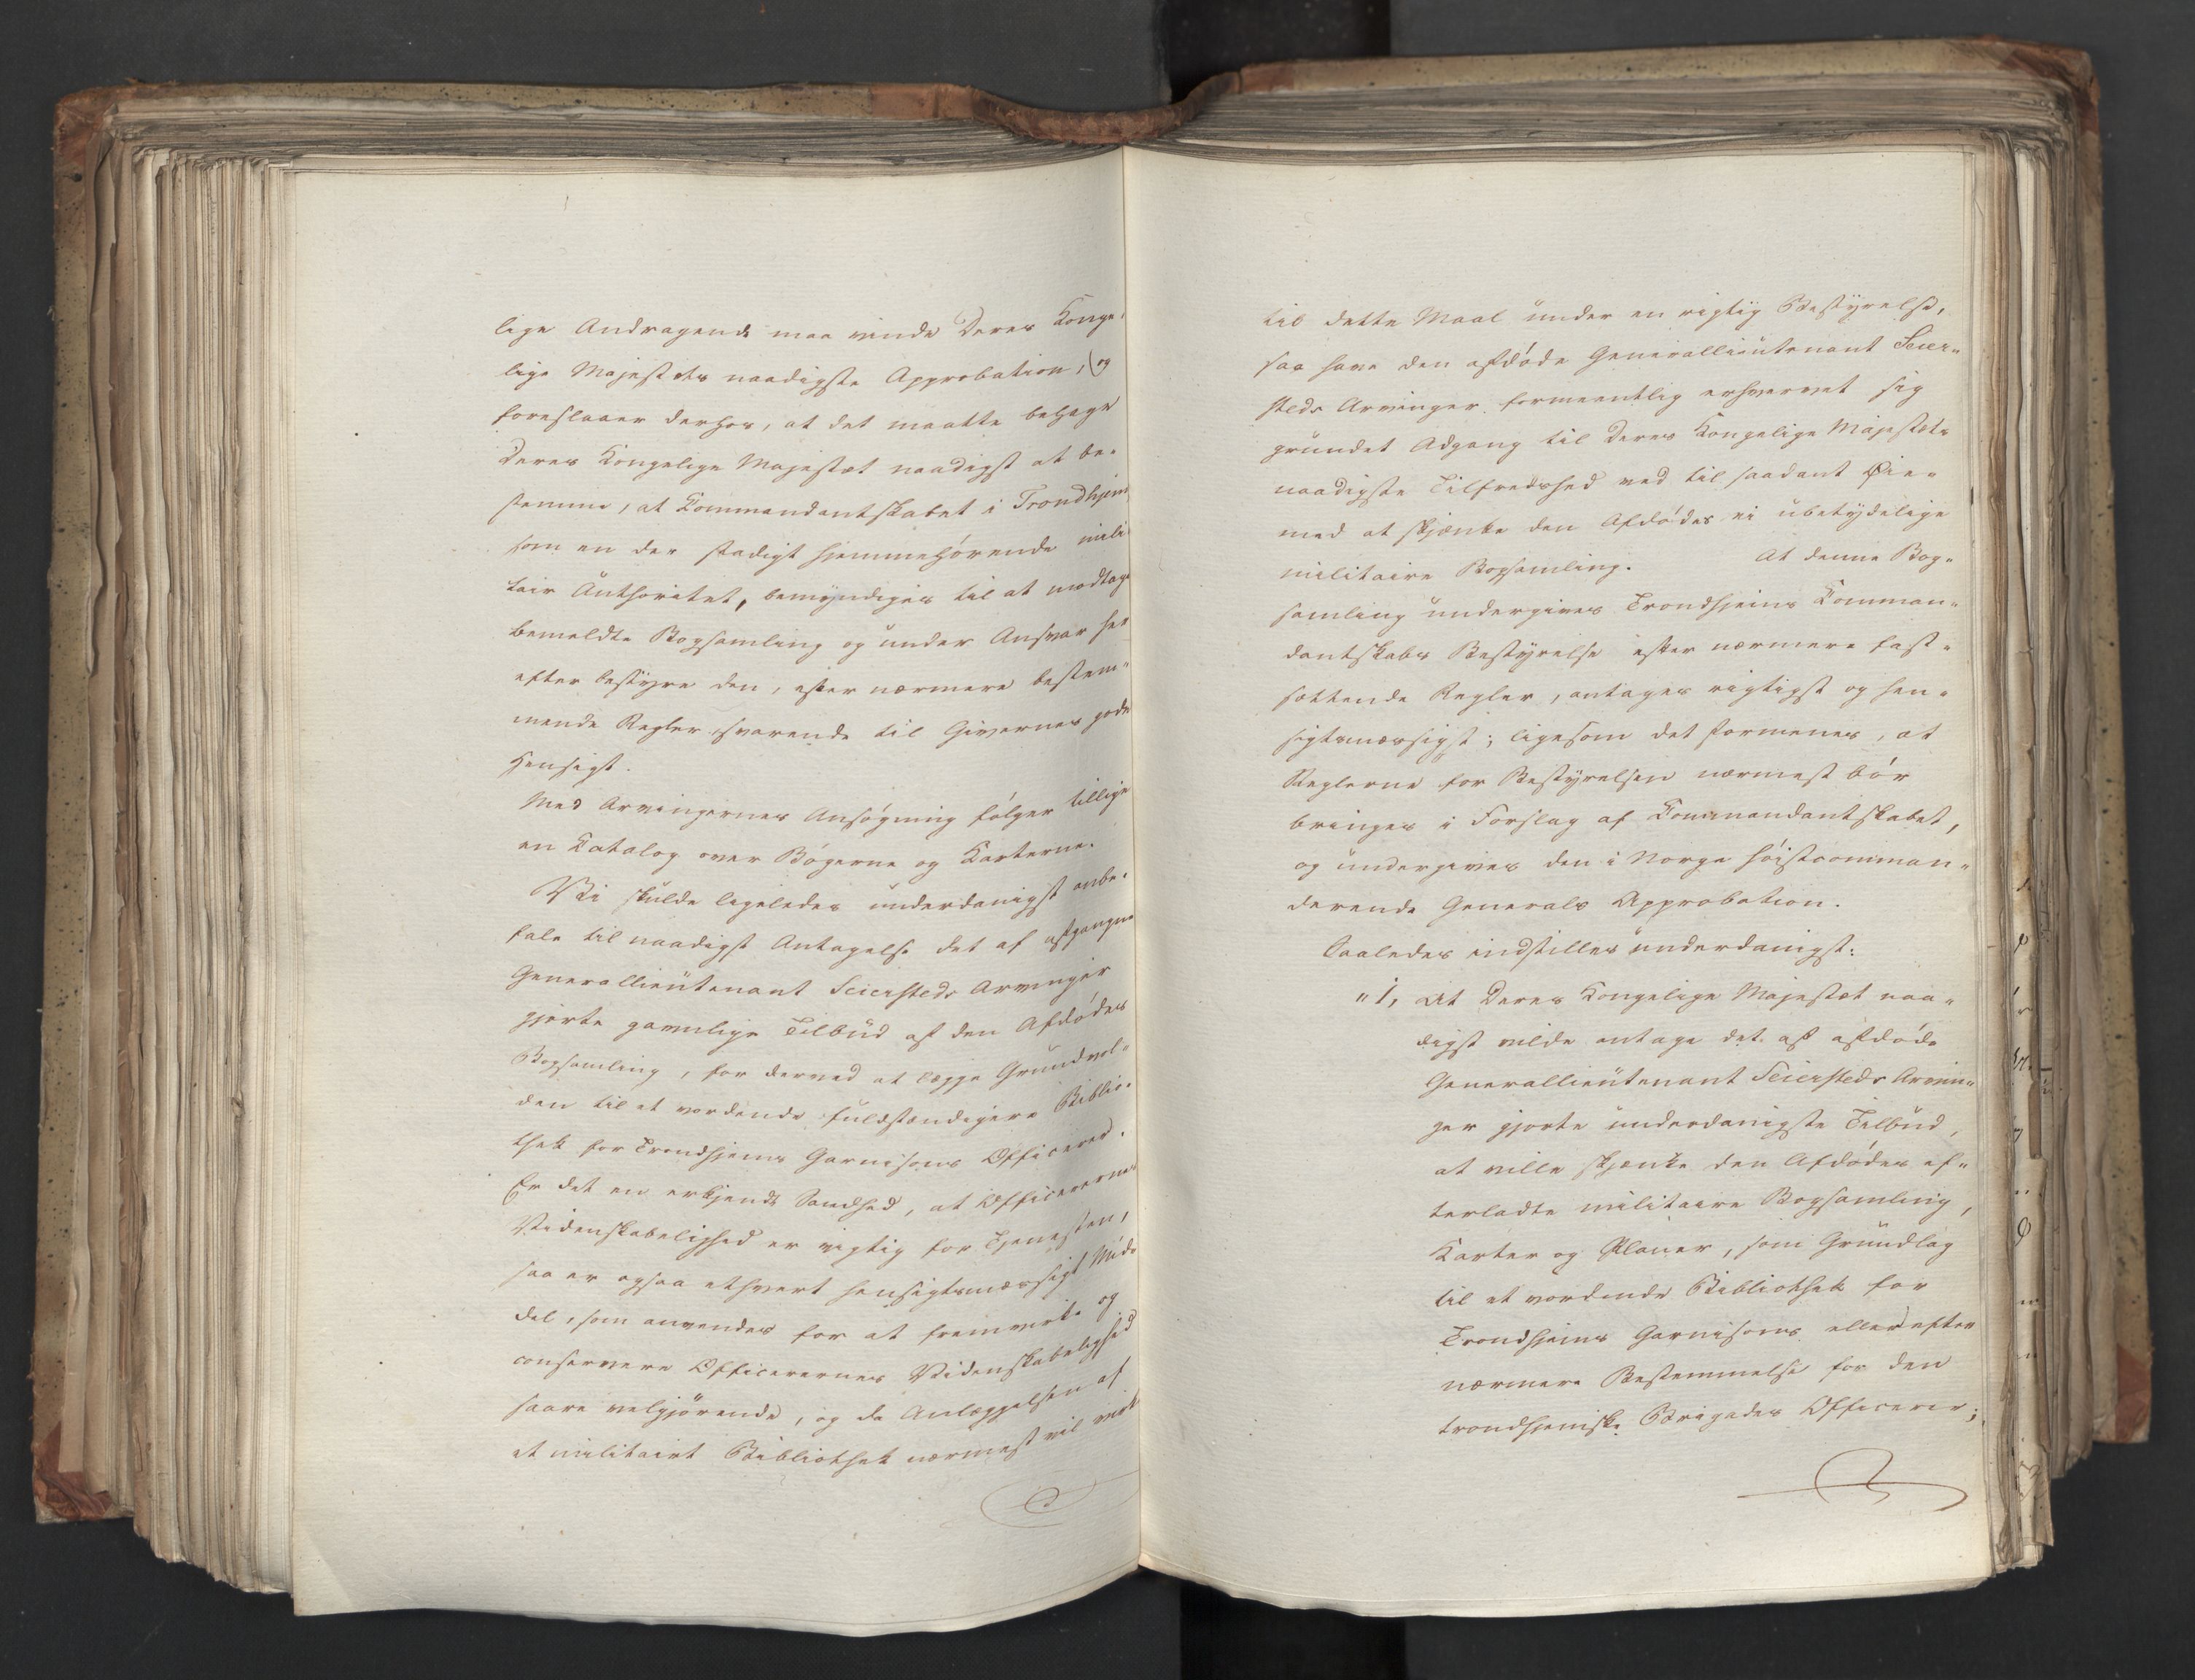 lige Andragende maa vinde Deres Konge-
lige Majestæts naadigste Approbation, og
foreslaaer derhos, at det maatte behage
Deres Kongelige Majestæt naadigst at be-
stemme, at Commandantskabet i Trondhjem
som en der stadigt hjemmehørende mili-
tair Authoritet, bemyndiges til at modtage
bemeldte Bogsamling og under Ansvar her
efter bestyre den, efter nærmere bestem-
mende Regler svarende til Givernes gode
Hensigt.
Med Arvingernes Ansøgning følger tillige
en Catalog over Bøgerne og Karterne.
Vi skulde ligeledes underdanigst anbe-
fale til naadigst Antagelse det af afgangne
Generallieutenant Seiersteds Arvinger
gjorte gavnlige Tilbud af den Afdødes
Bogsamling, for derved at lægge Grundvol-
den til et vordende fuldstændigere Biblio-
thek for Trondhjems Garnisons Officerer.
Er det en erkjendt Sandhed, at Officerernes
Videnskabelighed er vigtig for Tjenesten,
saa er ogsaa ethvert hensigtsmæssigt Mid-
del, som anvendes for at fremvirke og
conservere Officerernes Videnskabelighed
saare velgjørende, og da Anlæggelsen af
et militairt Bibliothek nærmest vil virke
til dette Maal under en rigtig Bestyrelse,
saa have den afdøde Generallieutenant Seier-
steds Arvinger formeentlig erhvervet sig
grundet Adgang til Deres Kongelige Majestæts
naadigste Tilfredshed ved til saadant Øie-
med at skjænke den Afdødes ei ubetydelige
militaire Bogsamling. At denne Bog-
samling undergives Trondhjems Comman-
dantskabs Bestyrelse efter nærmere fast-
sættende Regler, antages rigtigst og hen-
sigtsmæssigst; ligesom det formenes, at
Reglerne for Bestyrelsen nærmest bør
bringes i Forslag af Commandantskabet,
og undergives den i Norge høistcomman-
derende Generals Approbation.
Saaledes indstilles underdanigst:
"1, At Deres Kongelige Majestæt naa-
digst vilde antage det af afdøde
Generallieutenant Seiersteds Arvin-
ger gjorte underdanigste Tilbud,
at ville skjænke den Afdødes ef-
terladte militaire Bogsamling,
Karter og Planer, som Grundlag
til et vordende Bibliothek for
Trondhjems Garnisons eller efter
nærmere Bestemmelse for den
trondhjemske Brigades Officerer;